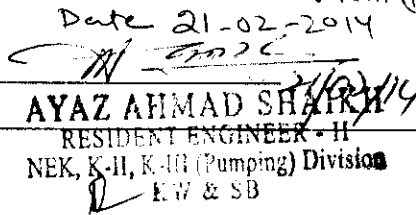 Date 21-02-2014
21/02/14
AYAZ AHMAD SHAIKH
RESIDENT ENGINEER - II
NEK, K-II, K-III (Pumping) Division
KW & SB